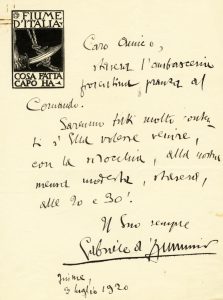 FIUME
D'ITALIA
COSA FATTA
CAPO HA
Caro Amico,
stasera l'ambasceria
fiorentina, pranza al
Comando.
Saremo tutti molto
se Ella volesse venire,
con la sirocchia, alla nostra
mensa modesta, stasera,
alle 20 e 30'.
Il Suo sempre
Gabriele d'Annunzio
Fiume,
9 luglio 1920